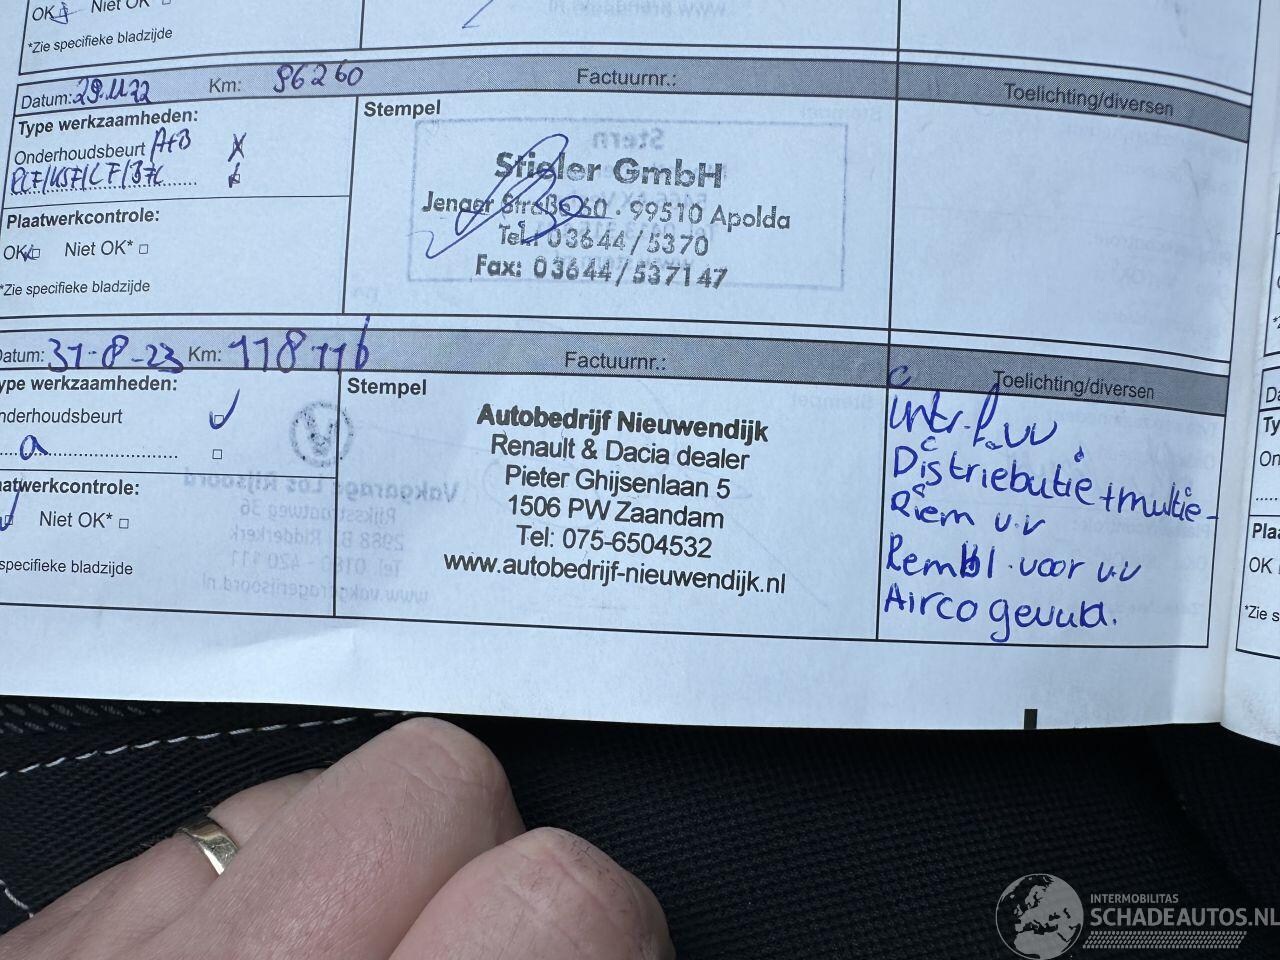 OK Niet OK
*Zie specifieke bladzijde
Datum: 29.11.22 Km: 96260 Factuurnr.: Toelichting/diversen
Type werkzaamheden:
Onderhoudsbeurt A+B
Stempel
Stern
Stieler GmbH
Jenaer Straße 60 · 99510 Apolda
Tel.: 03644/5370
Fax: 03644/537147
Plaatwerkcontrole:
OK Niet OK*
*Zie specifieke bladzijde
Datum: 31-8-23 Km: 118116 Factuurnr.: Toelichting/diversen
ype werkzaamheden:
nderhoudsbeurt
a
Stempel
Autobedrijf Nieuwendijk
Renault & Dacia dealer
Pieter Ghijsenlaan 5
1506 PW Zaandam
Tel: 075-6504532
www.autobedrijf-nieuwendijk.nl
Distriebutie + multie-
Riem v.v
Rembl. voor v.v
Airco gevuld.
aatwerkcontrole:
Niet OK*
specifieke bladzijde
Vakgarage Los Rijsoord
Rijksstraatweg 36
2988 BJ Ridderkerk
Tel. 0180 - 420 111
www.vakgaragerijsoord.nl
Da
Typ
On
Plaa
OK
*Zie s
INTERMOBILITAS
SCHADEAUTOS.NL